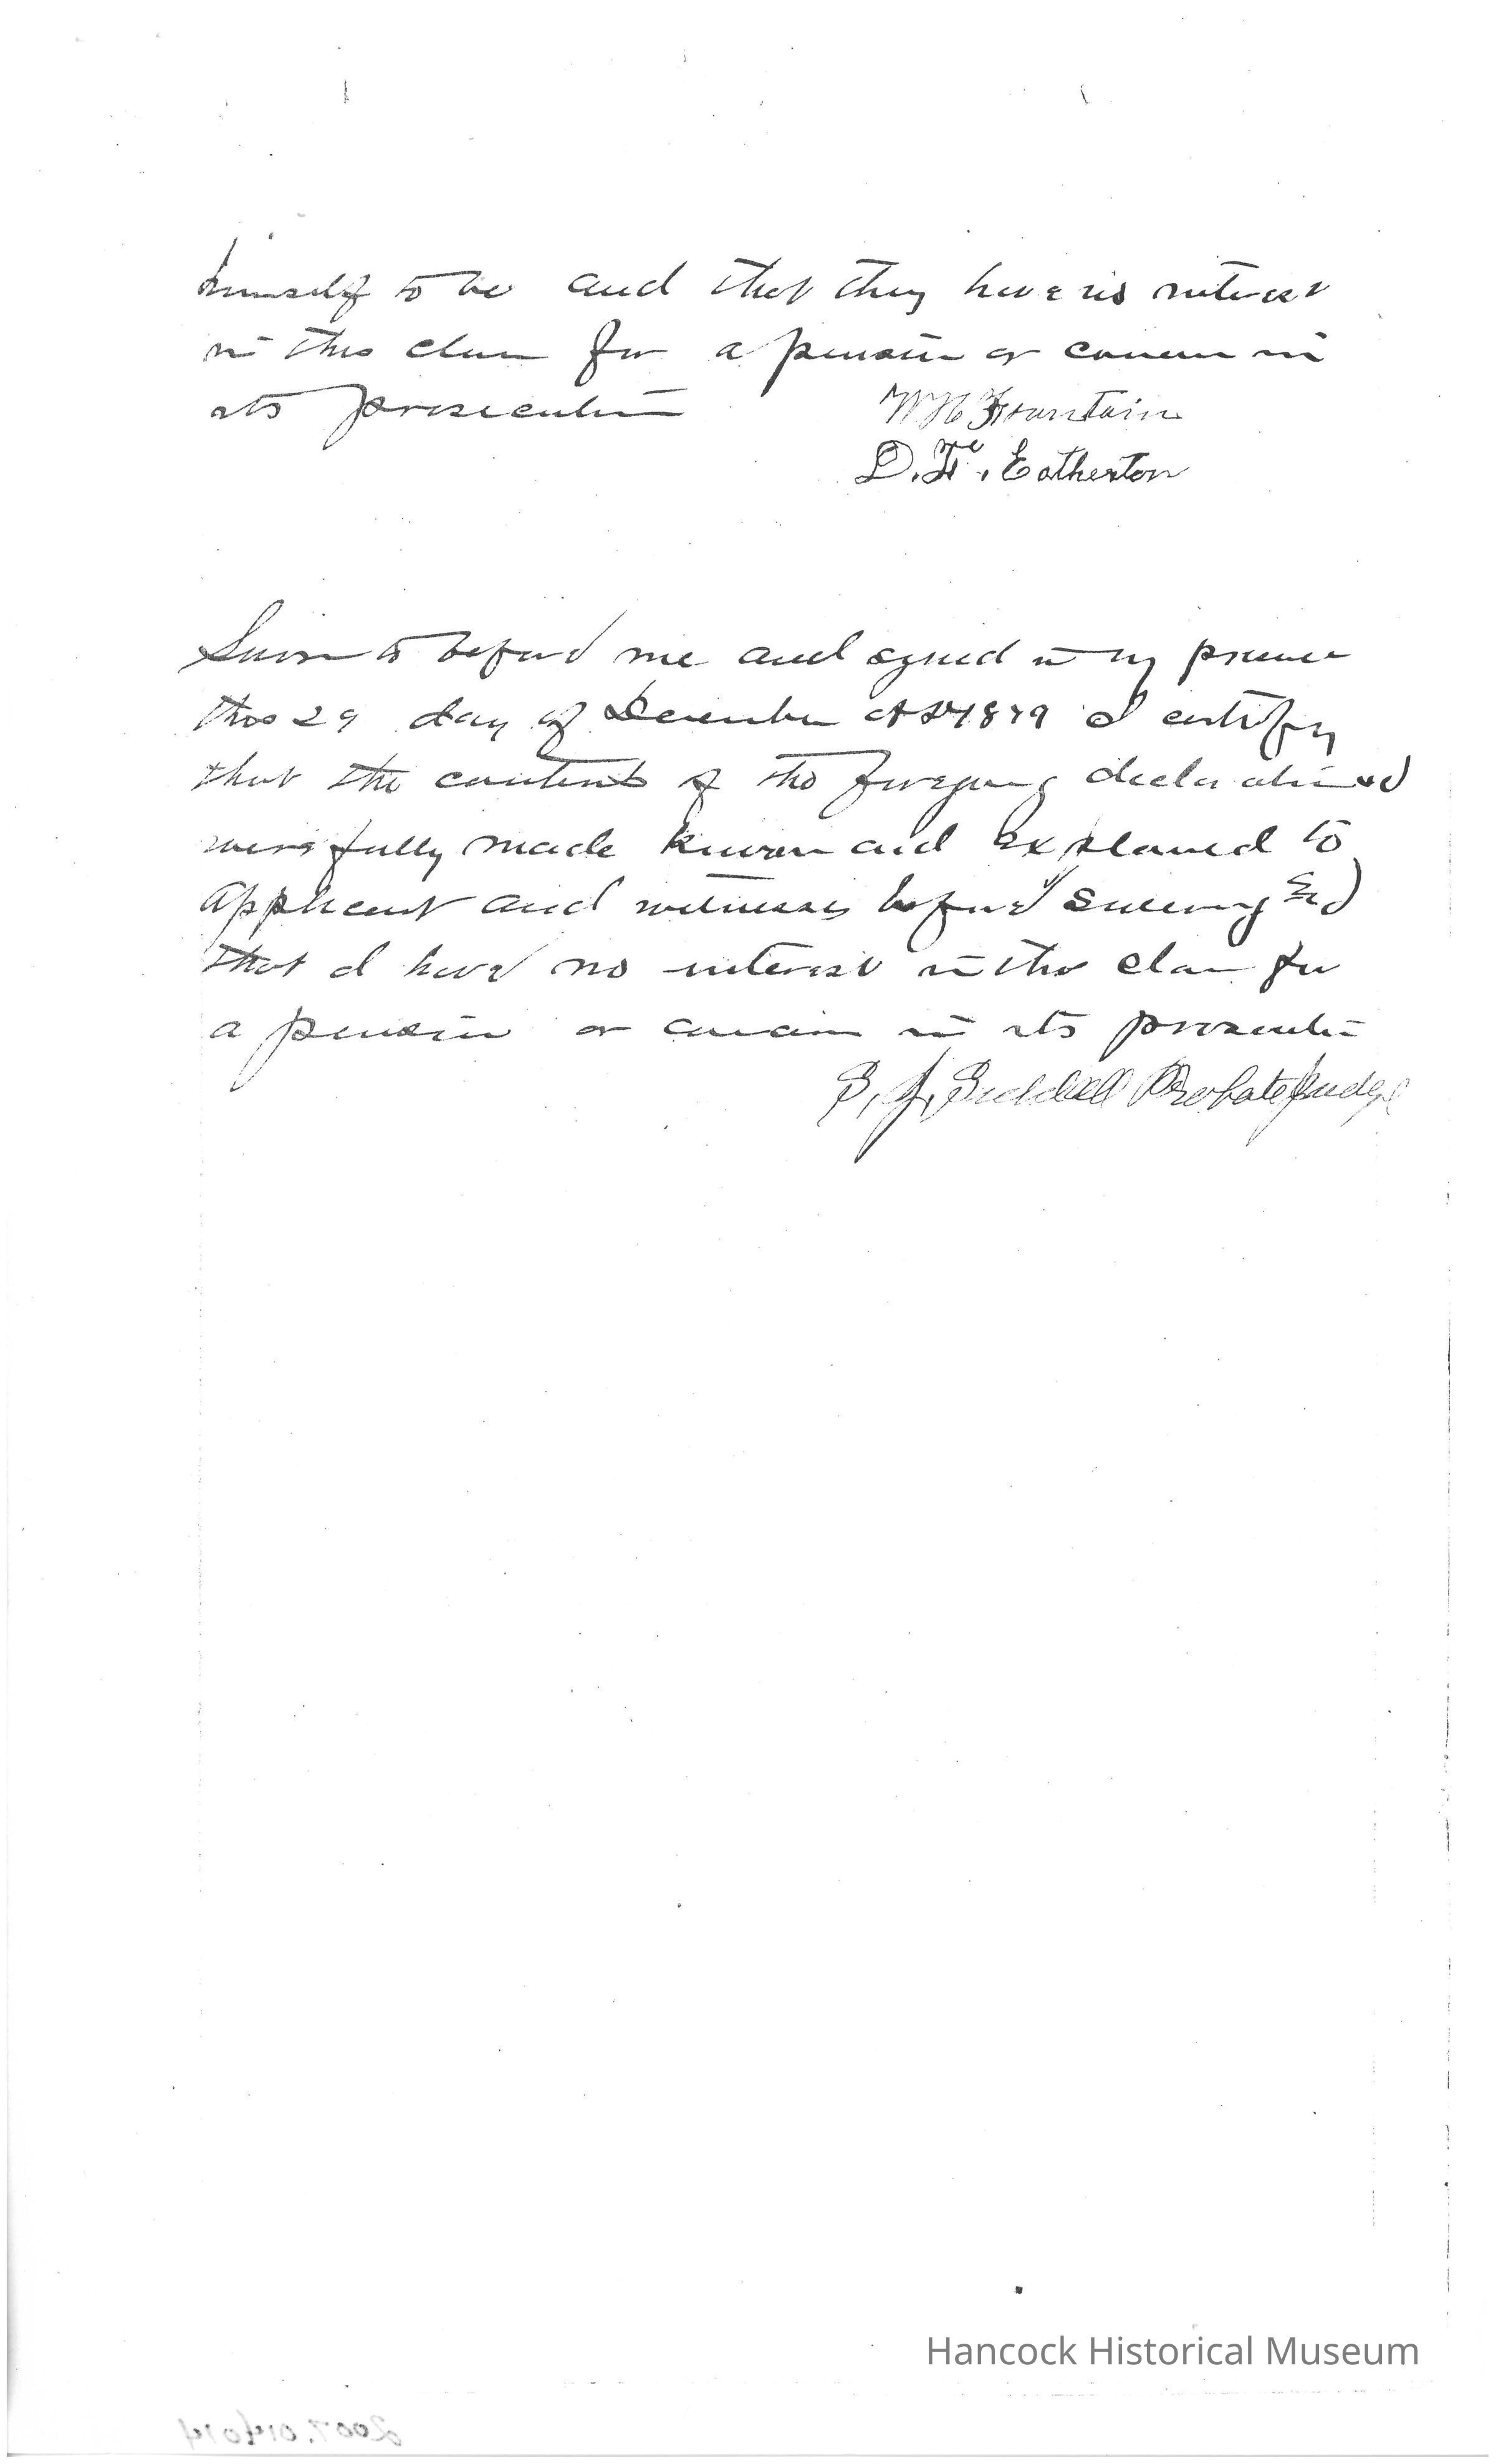 himself to be and that they have no interest
in this claim for a pension or concern in
its prosecution
W H Fountain
D. Mc F. Eatherton
Sworn to before me and signed in my presence
this 29 day of December AD 1879 I certify
that the contents of the foregoing declaration
were fully made known and explained to
applicant and witnesses before swearing and
that I have no interest in this claim for
a pension or concern in its prosecution
Probate Judge
Hancock Historical Museum